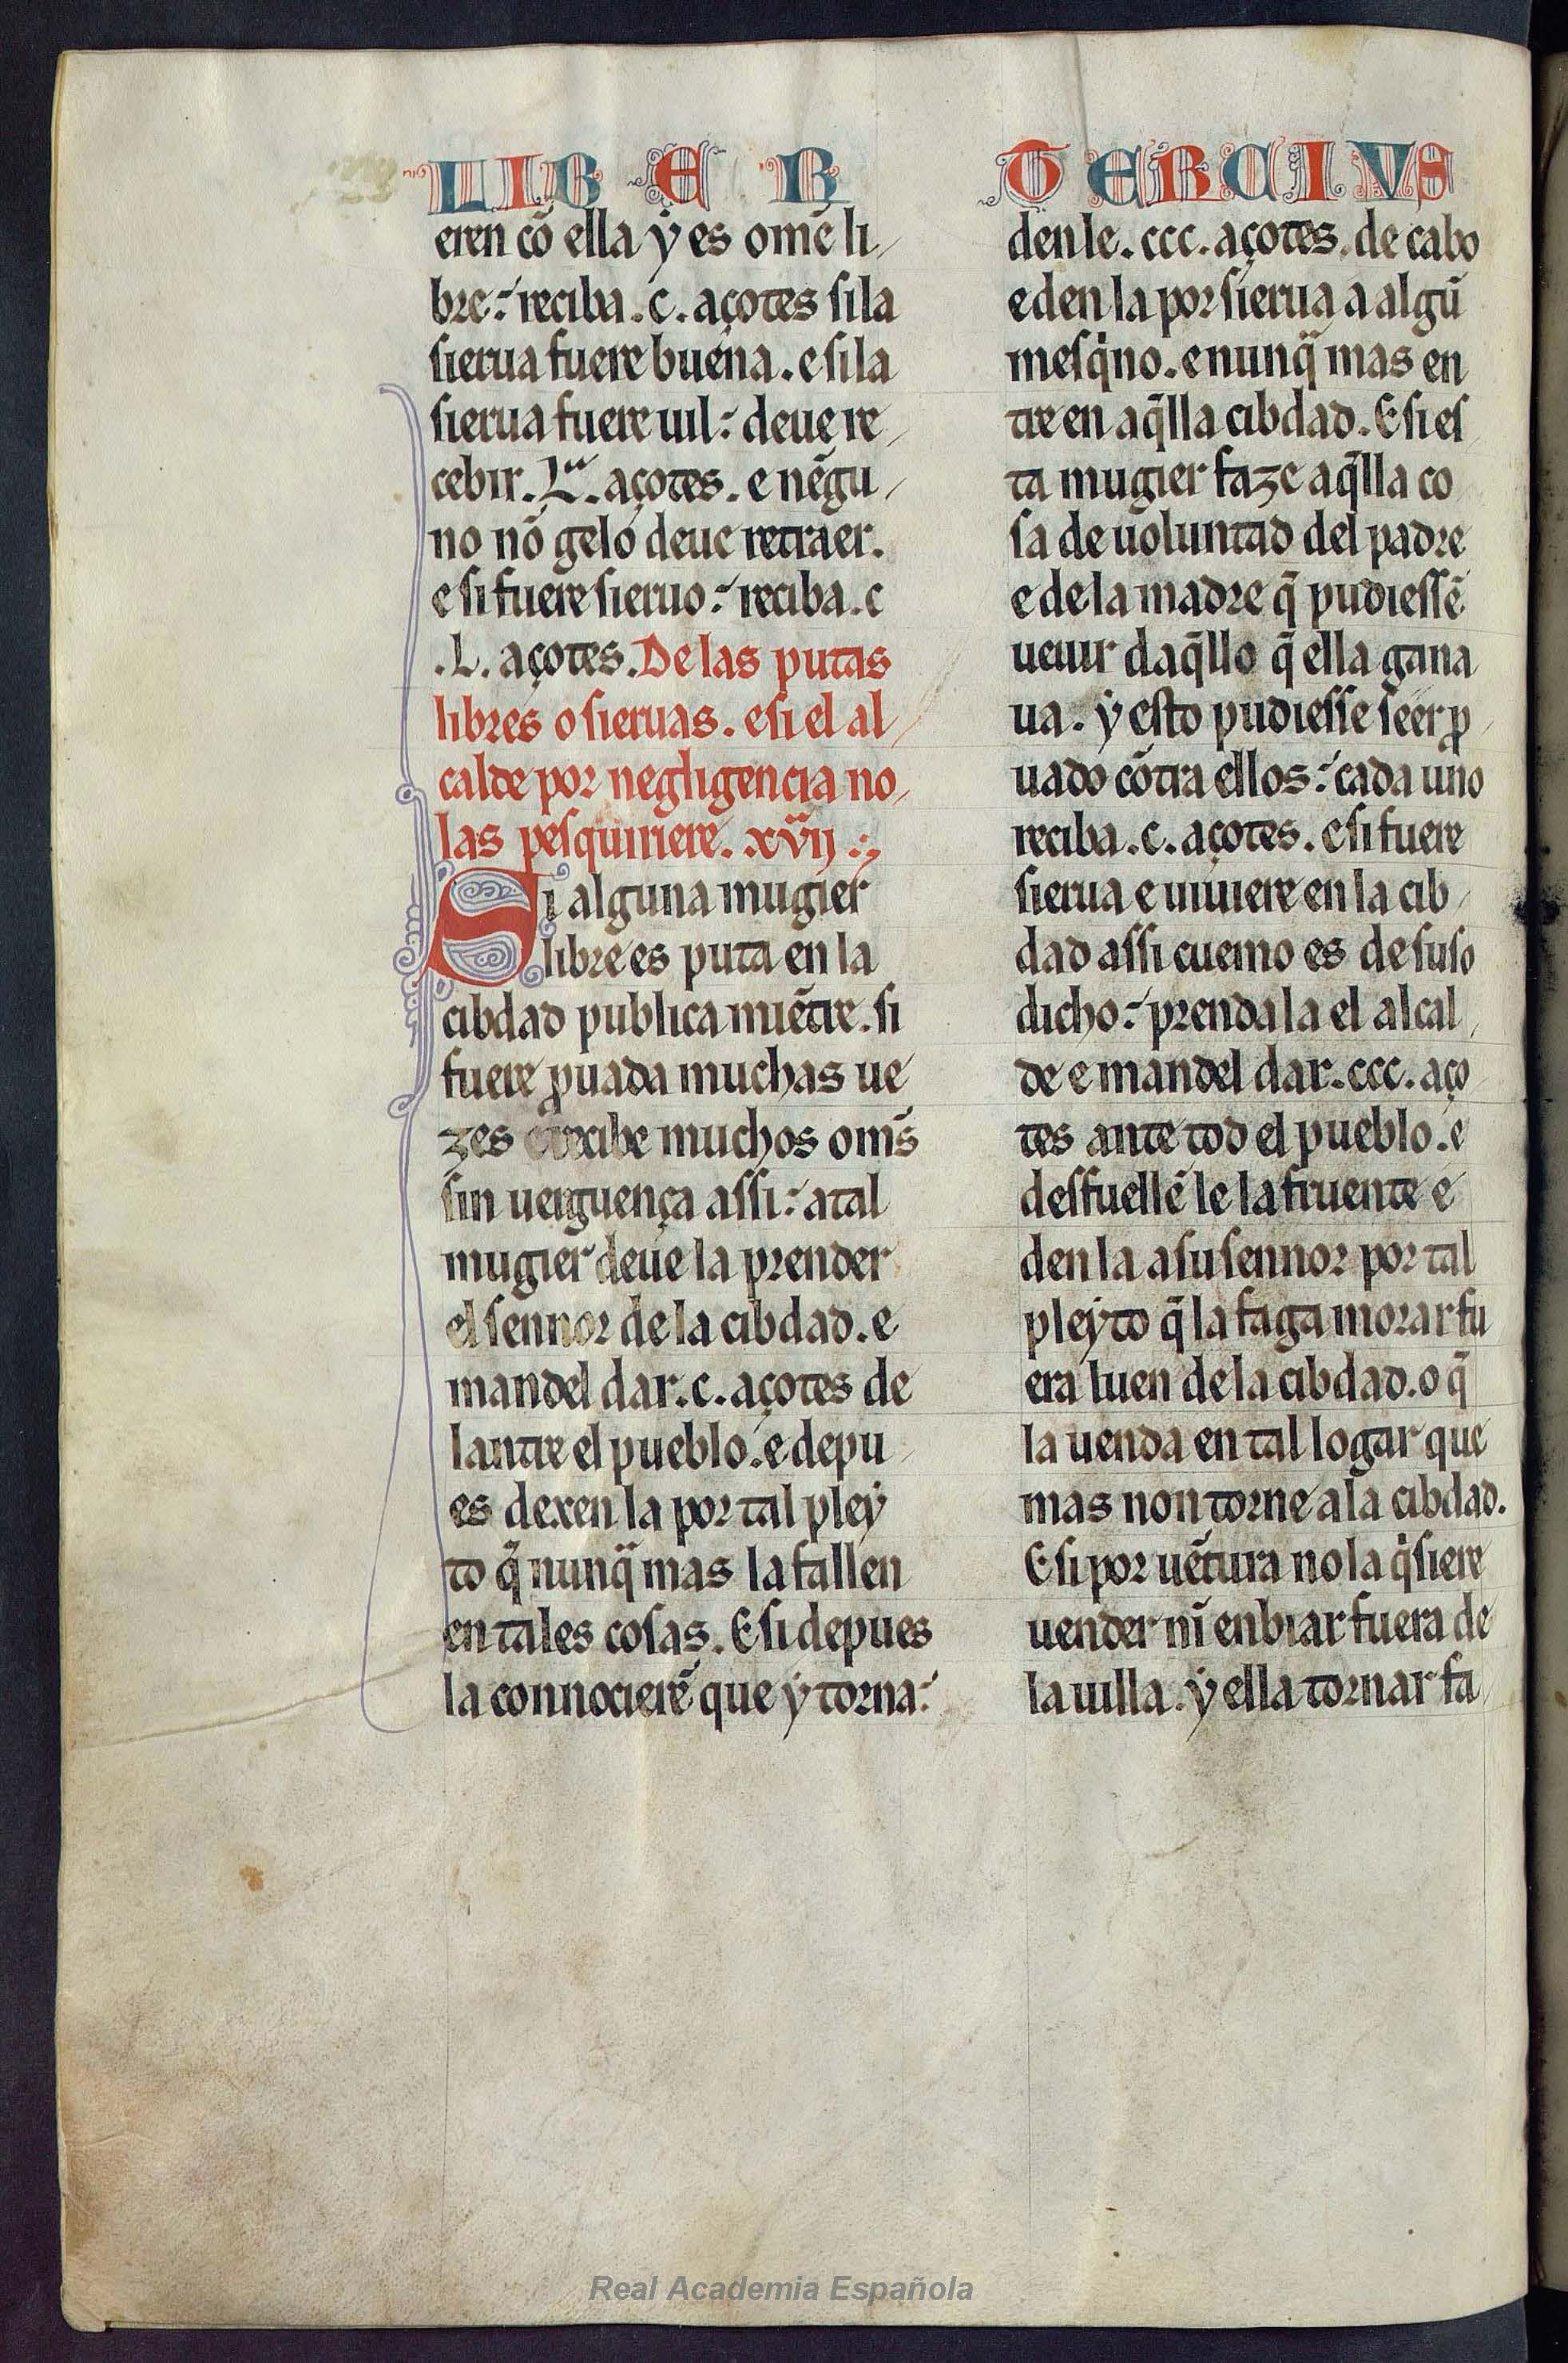 LIBER TERCIVS
eren cõ ella ẏ es omẽ li/
bre: reciba .c. açotes si la
sierua fuere buena. e si la
sierua fuere uil: deue re/
cebir. L.ª açotes. e nẽgu/
no nõ gelo deue retraer.
e si fuere sieruo: reciba .c
.L. açotes. De las putas
libres o sieruas. e si el al/
calde por negligencia no/
las pesquiriere. xvij
Si alguna mugier
libre es puta en la
cibdad publica miẽtre. si
fuere ꝓuada muchas ue/
zes e recibe muchos om̃s
sin uerguença assi: atal
mugier deue la prender
el sennor de la cibdad. e
mandel dar .c. açotes de
lantre el pueblo. e depu/
es dexen la por tal pleẏ
to q̃ nunq̃ mas la fallen
en tales cosas. E si depues
la connocierẽ que ẏ torna:
denle .ccc. açotes. de cabo
e den la por sierua a algũ
mesq̇no. e nunq̃ mas en
tre en aq̃lla cibdad. E si es/
ta mugier faze aq̃lla co
sa de uoluntad del padre
e de la madre q̃ pudiessẽ
ueuir daq̃llo q̃ ella gana
ua. ẏ esto pudiesse seer ꝓ/
uado cõtra ellos: cada uno
reciba .c. açotes. e si fuere
sierua e uiuiere en la cib/
dad assi cuemo es de suso
dicho: prenda la el alcal/
de e mandel dar .ccc. aço/
tes ante tod el pueblo. e
desfuellẽ le la fruente e
den la a su sennor por tal
pleẏto q̃ la faga morar fu
era luen de la cibdad. o q̃
la uenda en tal logar que
mas non torne a la cibdad.
E si por uẽtura no la q̇siere
uender nĩ enbiar fuera de
la uilla. ẏ ella tornar fa/
Real Academia Española